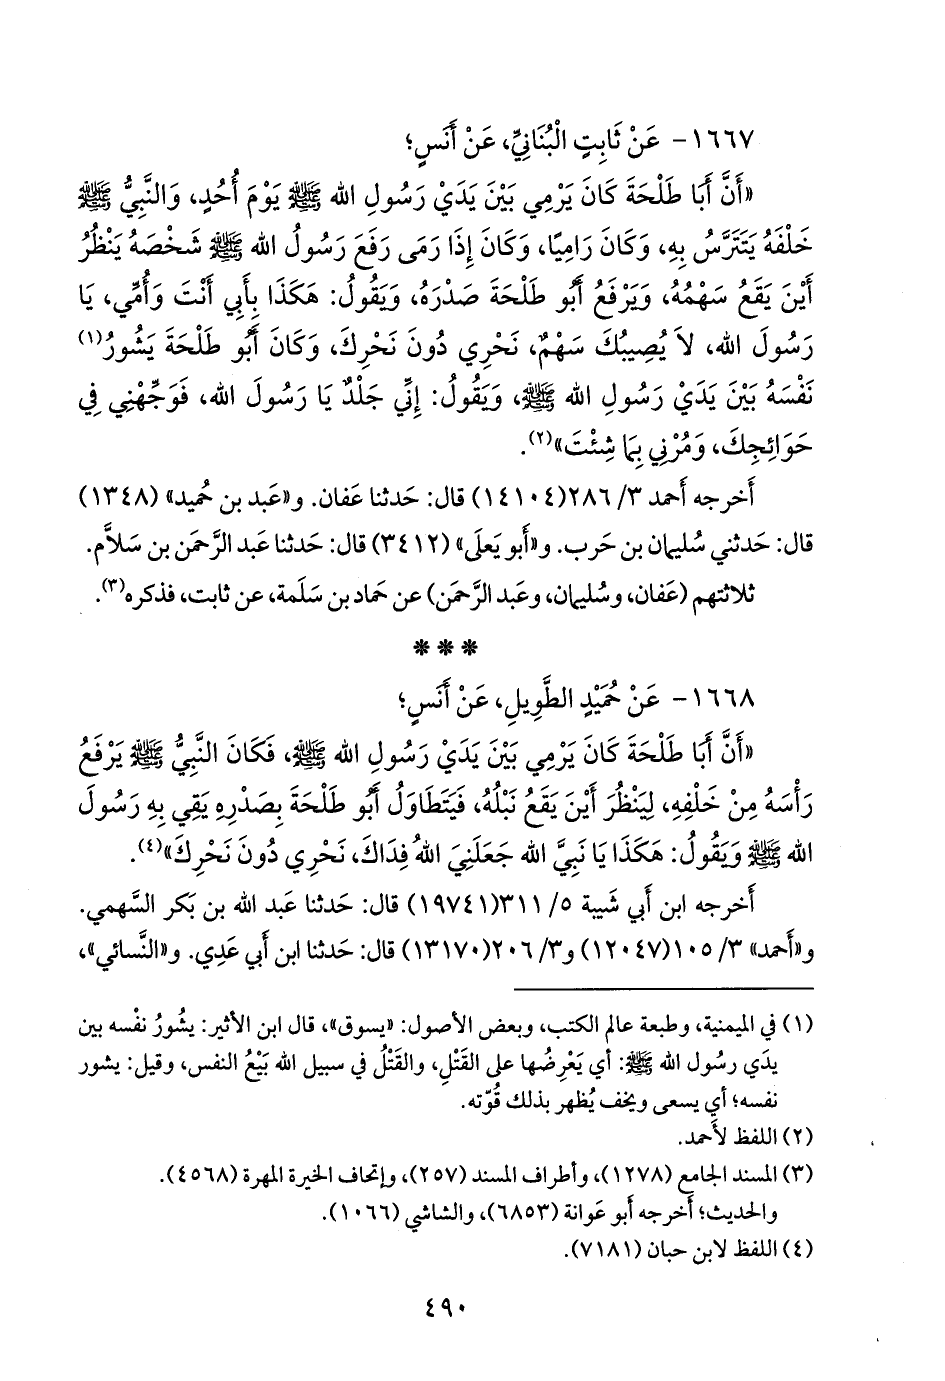 ١٦٦٧- عَنْ ثَابِتٍ الْبُنَانِيِّ، عَنْ أَنَسٍ؛
«أَنَّ أَبَا طَلْحَةَ كَانَ يَرْمِي بَيْنَ يَدَيْ رَسُولِ الله ﷺ يَوْمَ أُحُدٍ، وَالنَّبِيُّ ﷺ
خَلْفَهُ يَتَتَرَّسُ بِهِ، وَكَانَ رَامِيًا، وَكَانَ إِذَا رَمَى رَفَعَ رَسُولُ الله ﷺ شَخْصَهُ يَنْظُرُ
أَيْنَ يَقَعُ سَهْمُهُ، وَيَرْفَعُ أَبُو طَلْحَةَ صَدْرَهُ، وَيَقُولُ: هَكَذَا بِأَبِي أَنْتَ وَأُمِّي، يَا
رَسُولَ الله، لاَ يُصِيبُكَ سَهْمٌ، نَحْرِي دُونَ نَحْرِكَ، وَكَانَ أَبُو طَلْحَةَ يَشُورُ(١)
نَفْسَهُ بَيْنَ يَدَيْ رَسُولِ الله ﷺ، وَيَقُولُ: إِنِّي جَلْدٌ يَا رَسُولَ الله، فَوَجِّهْنِي فِي
حَوَائِجِكَ، وَمُرْنِي بِمَا شِئْتَ»(٢).
أَخرجه أَحمد ٣/ ٢٨٦(١٤١٠٤) قال: حَدثنا عَفان. و«عَبد بن حُميد» (١٣٤٨)
قال: حَدثني سُليمان بن حَرب. و«أَبو يَعلَى» (٣٤١٢) قال: حَدثنا عَبد الرَّحمَن بن سَلاَّم.
ثلاثتهم (عَفان، وسُليمان، وعَبد الرَّحمَن) عن حَماد بن سَلَمة، عن ثابت، فذكره(٣).
* * *
١٦٦٨- عَنْ حُمَيْدٍ الطَّوِيلِ، عَنْ أَنَسٍ؛
«أَنَّ أَبَا طَلْحَةَ كَانَ يَرْمِي بَيْنَ يَدَيْ رَسُولِ الله ﷺ، فَكَانَ النَّبِيُّ ﷺ يَرْفَعُ
رَأْسَهُ مِنْ خَلْفِهِ، لِيَنْظُرَ أَيْنَ يَقَعُ نَبْلُهُ، فَيَتَطَاوَلُ أَبُو طَلْحَةَ بِصَدْرِهِ يَقِي بِهِ رَسُولَ
الله ﷺ وَيَقُولُ: هَكَذَا يَا نَبِيَّ الله جَعَلَنِيَ اللهُ فِدَاكَ، نَحْرِي دُونَ نَحْرِكَ»(٤).
أَخرجه ابن أَبي شَيبة ٥/ ٣١١(١٩٧٤١) قال: حَدثنا عَبد الله بن بَكر السَّهمي.
و«أَحمد» ٣/ ١٠٥(١٢٠٤٧) و٣/ ٢٠٦(١٣١٧٠) قال: حَدثنا ابن أَبي عَدِي. و«النَّسائي»،
(١) في الميمنية، وطبعة عالم الكتب، وبعض الأصول: «يسوق»، قال ابن الأثير: يشُورُ نفْسه بين
يدَي رسُول الله ﷺ: أي يَعْرِضُها على القَتْلِ، والقَتْلُ في سبيل الله بَيْعُ النفس، وقيل: يشور
نفسه؛ أي يسعى ويخف يُظهر بذلك قُوَّته.
(٢) اللفظ لأحمد.
(٣) المسند الجامع (١٢٧٨)، وأطراف المسند (٢٥٧)، وإتحاف الخيرة المهرة (٤٥٦٨).
والحديث؛ أخرجه أبو عَوانة (٦٨٥٣)، والشاشي (١٠٦٦).
(٤) اللفظ لابن حبان (٧١٨١).
٤٩٠